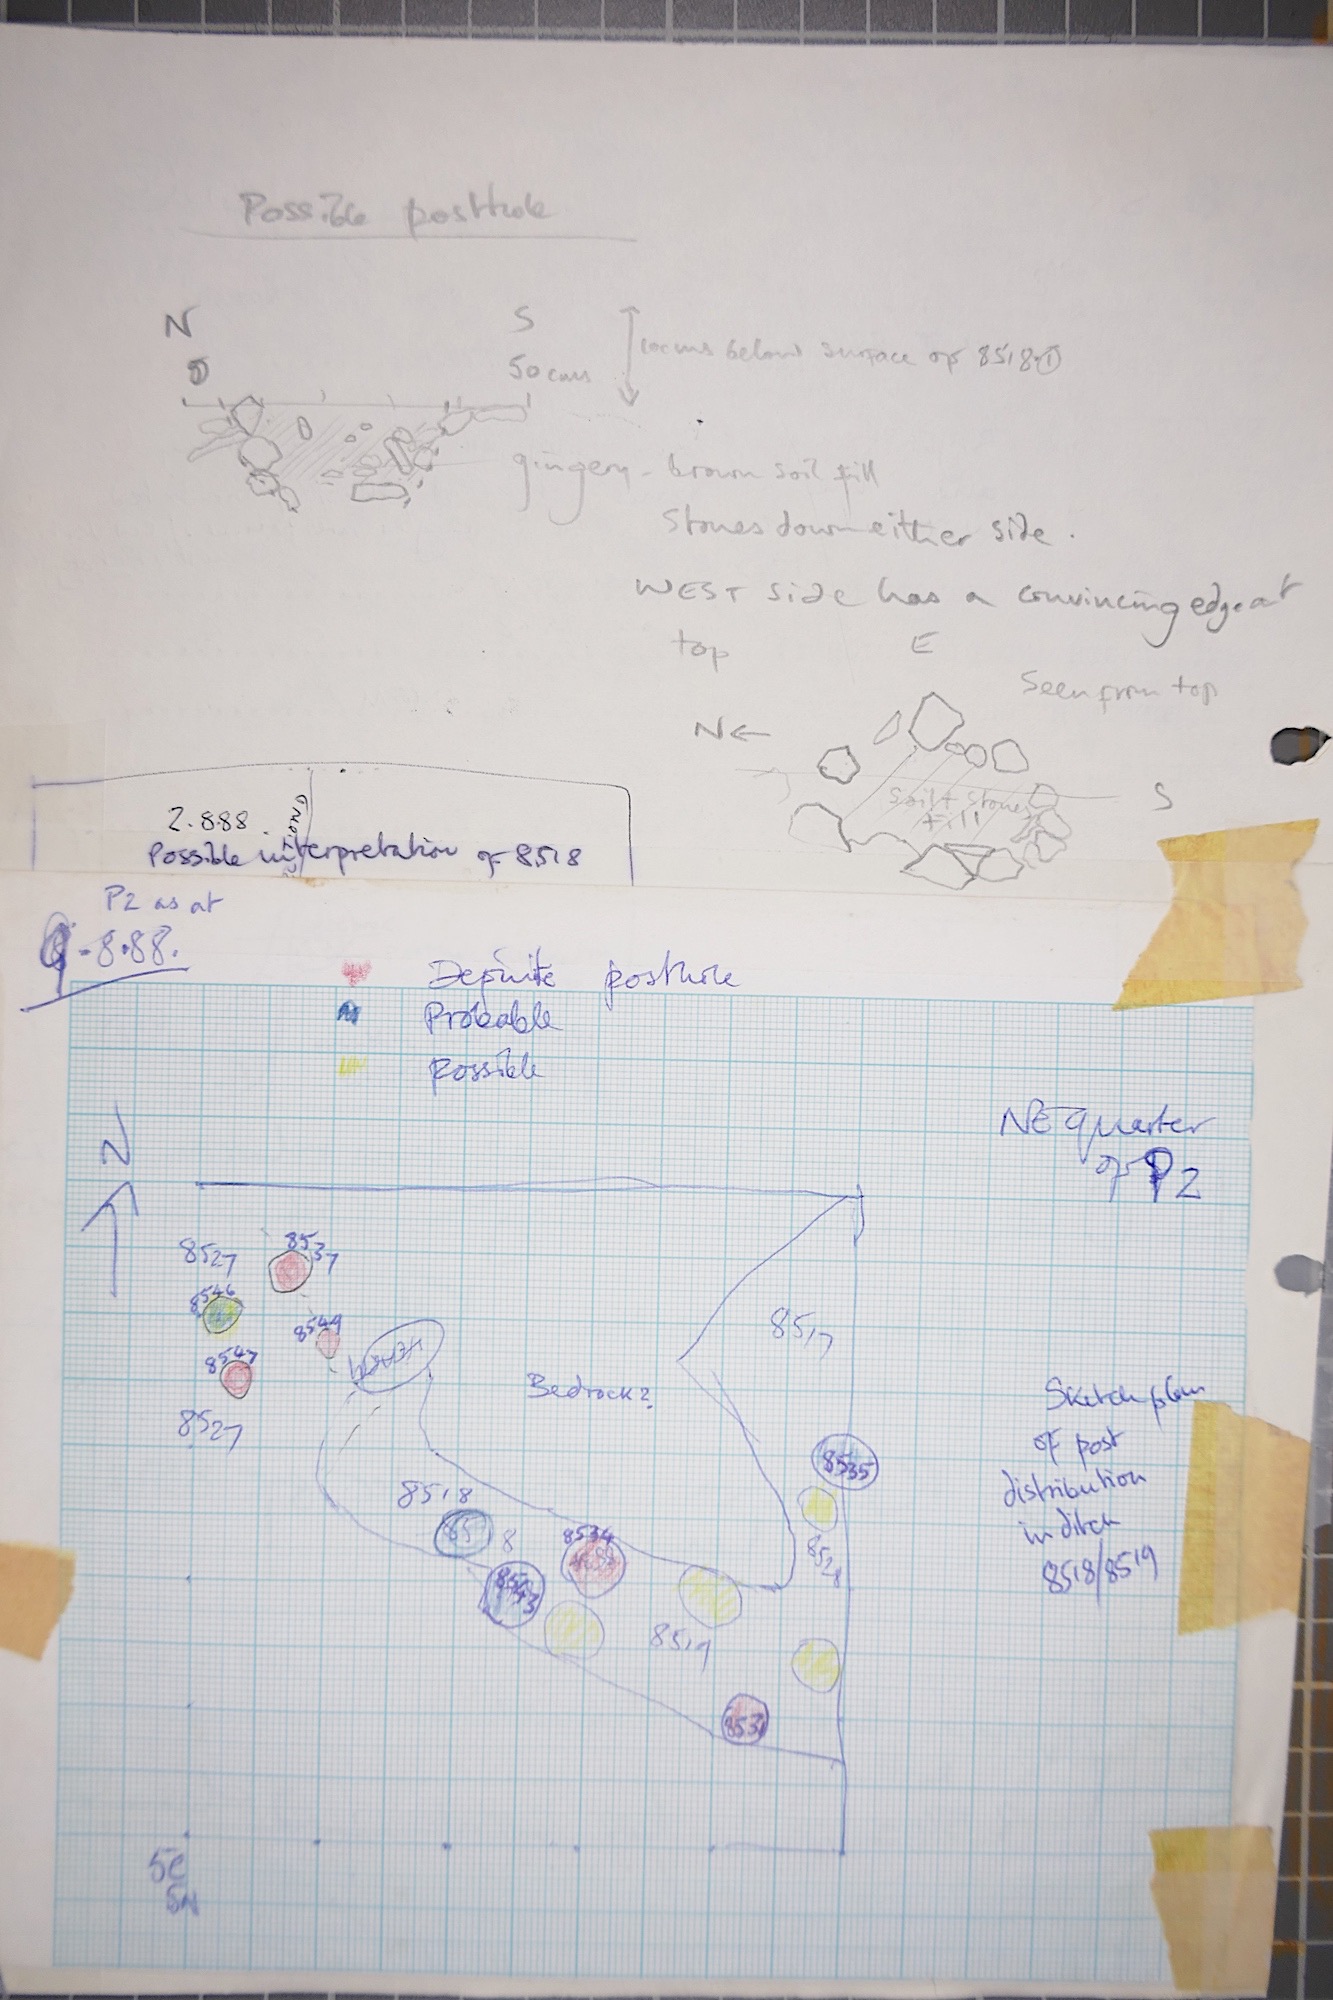 Possible posthole
N S
0 50 cms
10cms below surface of 8518.①
gingery-brown soil fill
Stones down either side.
WEST side has a convincing edge at
top
E
Seen from top
N←
S
Soil + Stones
fill
2.8.88
Possible interpretation of 8518
P2 as at
9.8.88.
Definite posthole
Probable
possible
N
NE quarter
of P2
8527
8537
8546
8549
8547
8527
8517
Bedrock?
Sketch plan
of post
distribution
in ditch
8518/8519
8535
8528
8518
8
8534
8543
8519
853
5E
5N